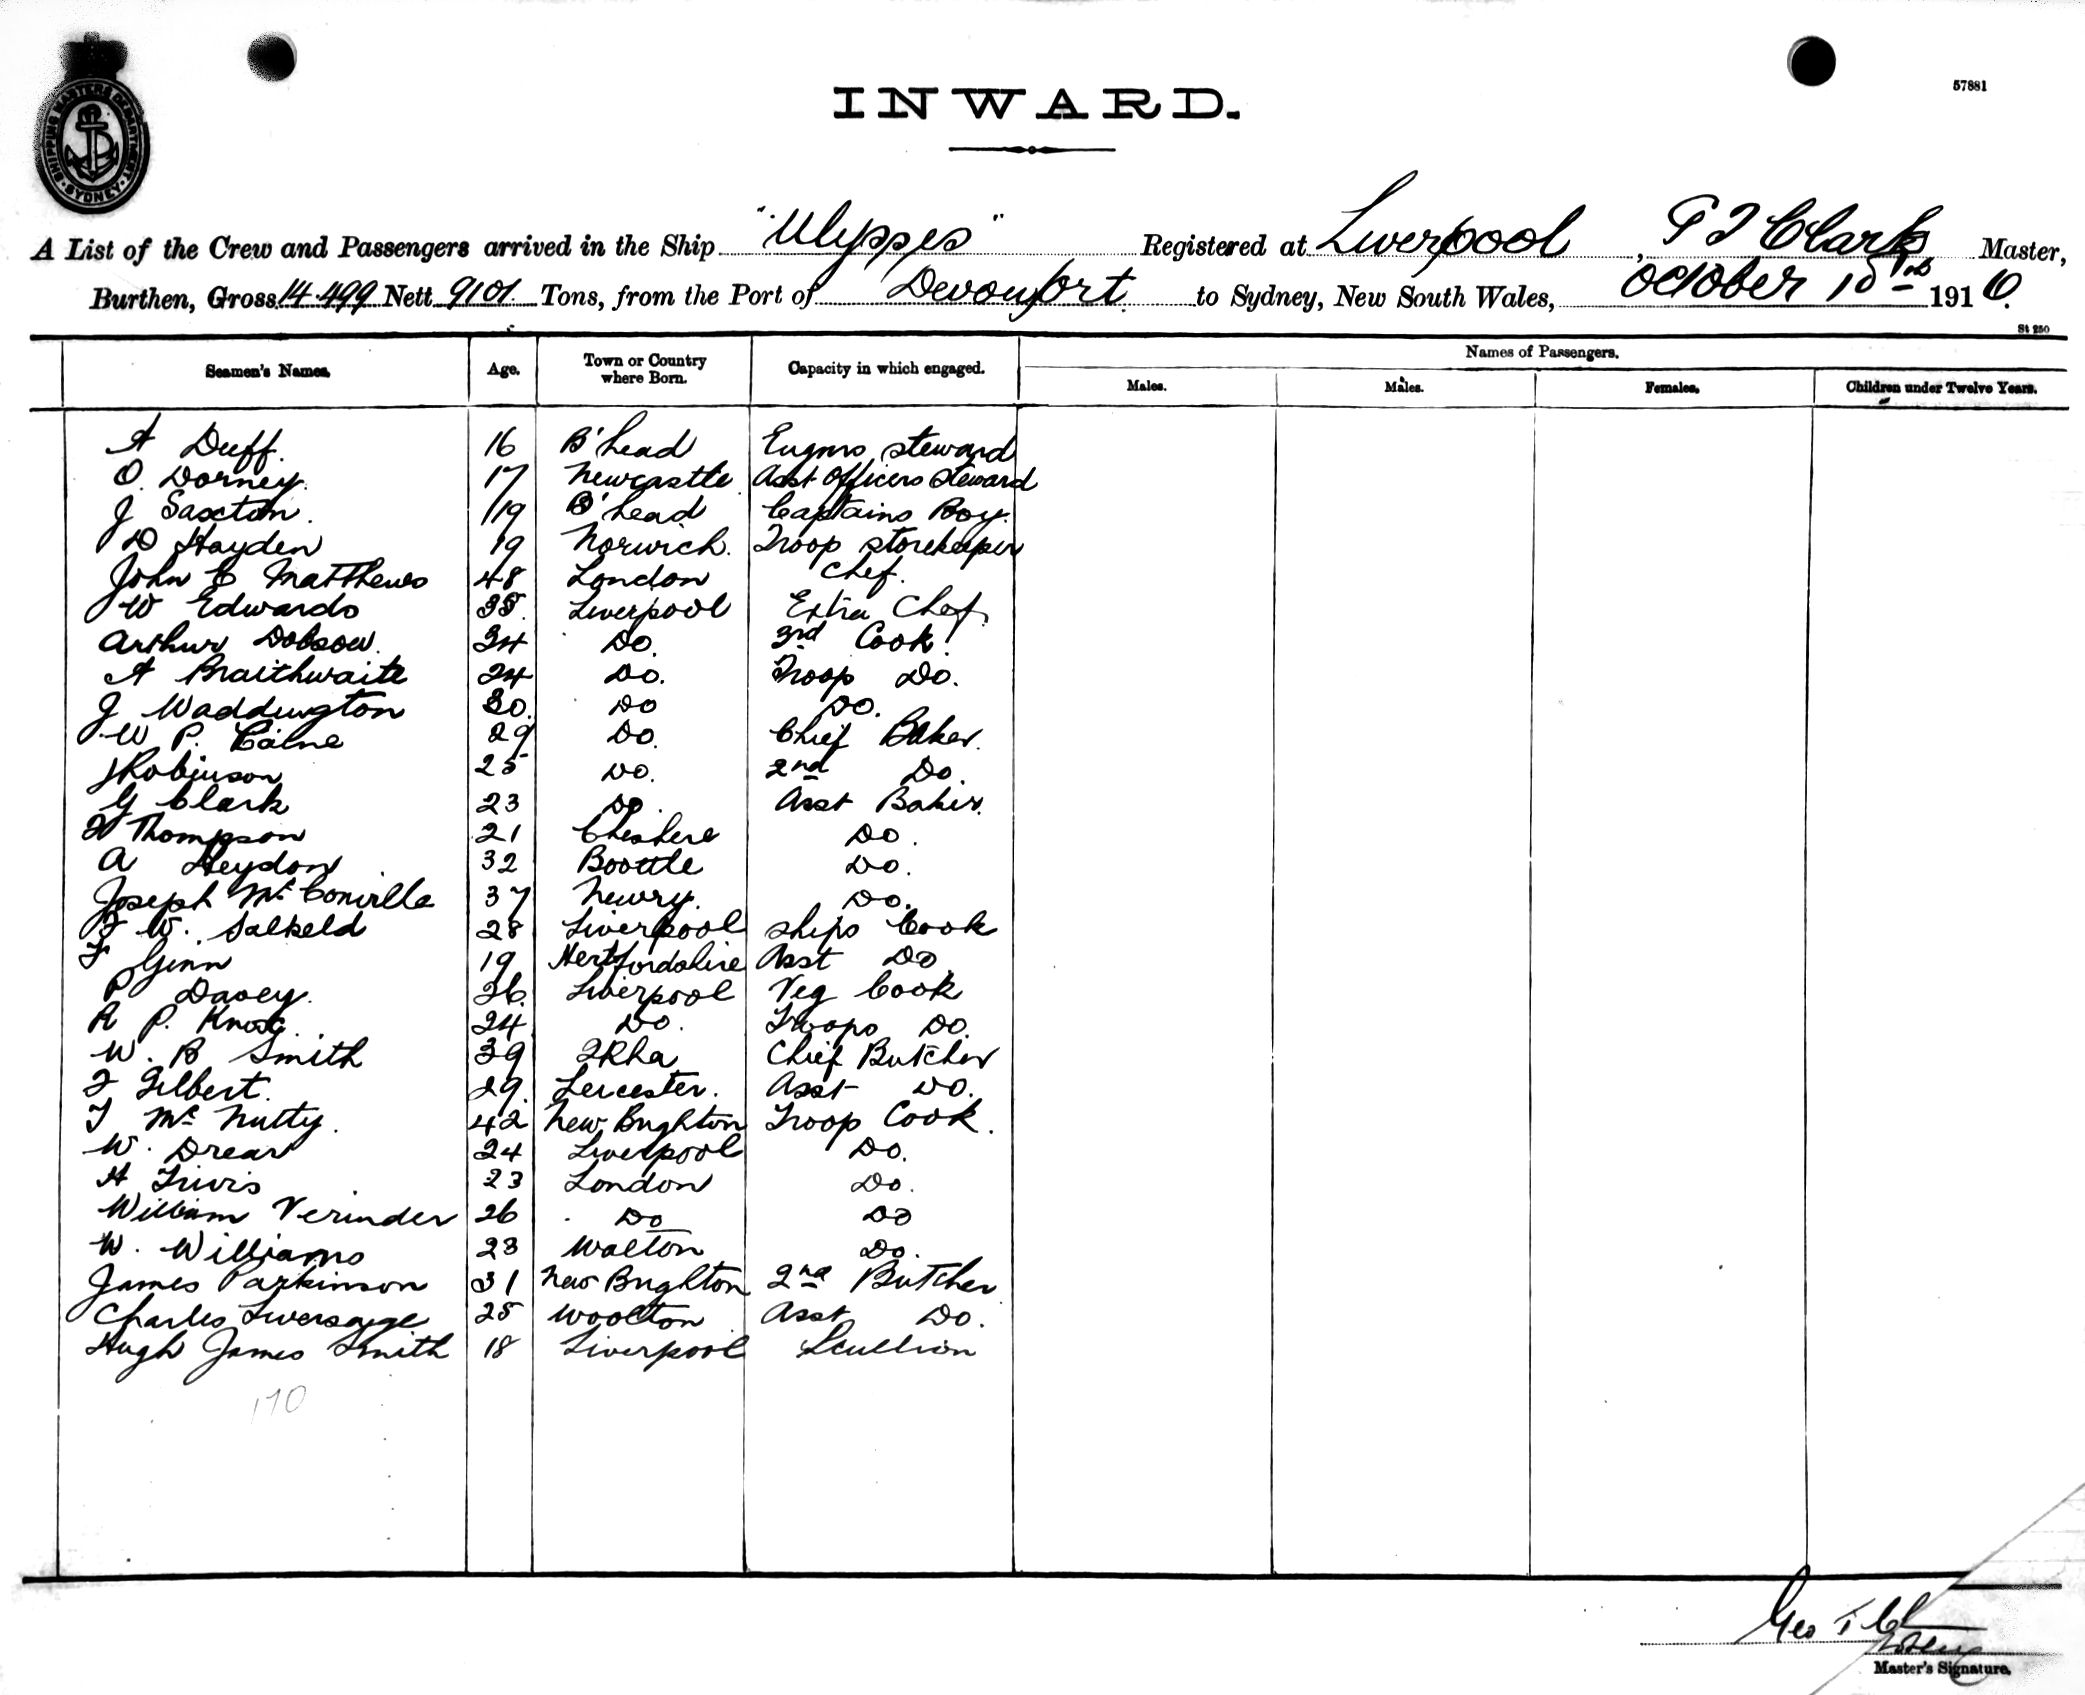 SHIPPING MASTERS DEPARTMENT · SYDNEY ·
57881
INWARD.
A List of the Crew and Passengers arrived in the Ship "Ulysses" Registered at Liverpool, G T Clark Master,
Burthen, Gross 14.499 Nett 9101 Tons, from the Port of Devonport to Sydney, New South Wales, October 10th 1916.
St 250
Seamen's Names. Age. Town or Country where Born. Capacity in which engaged. Names of Passengers.
Males. Males. Females. Children under Twelve Years.
A Duff. 16 B'head Engnrs steward
O. Dorney. 17 Newcastle Asst Officers Steward
J Saxton. 19 B'head Captains Boy.
D Hayden 19 Norwich. Troop storekeeper
John E Matthews 48 London Chef.
W Edwards Liverpool Extra Chef
Arthur Dobson. 34 Do. 3rd Cook.
A Braithwaite 24 Do. Troop Do.
J Waddington 30. Do Do.
W P. Caine 29 Do. Chief Baker.
J Robinson 25 Do. 2nd Do.
G Clark 23 Do. Asst Baker.
Thompson 21 Cheshire Do.
A Heydon 32 Bootle Do.
Joseph Mc Conville 37 Newry. Do.
F W. Salkeld 28 Liverpool ships Cook
F Ginn 19 Hertfordshire Asst Do
P Davey. 36. Liverpool Veg Cook
R P. Knox. 24 Do. Troops Do.
W. B Smith 39 Chief Butcher
F Gilbert. 29. Leicester. Asst Do.
T Mc Nutty. 42 New Brighton Troop Cook.
W. Drear 24 Liverpool Do.
H 23 London Do.
William Verinder 26 Do Do
W. Williams 23 Walton Do.
James Parkinson 31 New Brighton 2nd Butcher
Charles Liversage 25 Woolton Asst Do.
Hugh James Smith 18 Liverpool Scullion
170
Geo T Cl
Master's Signature.